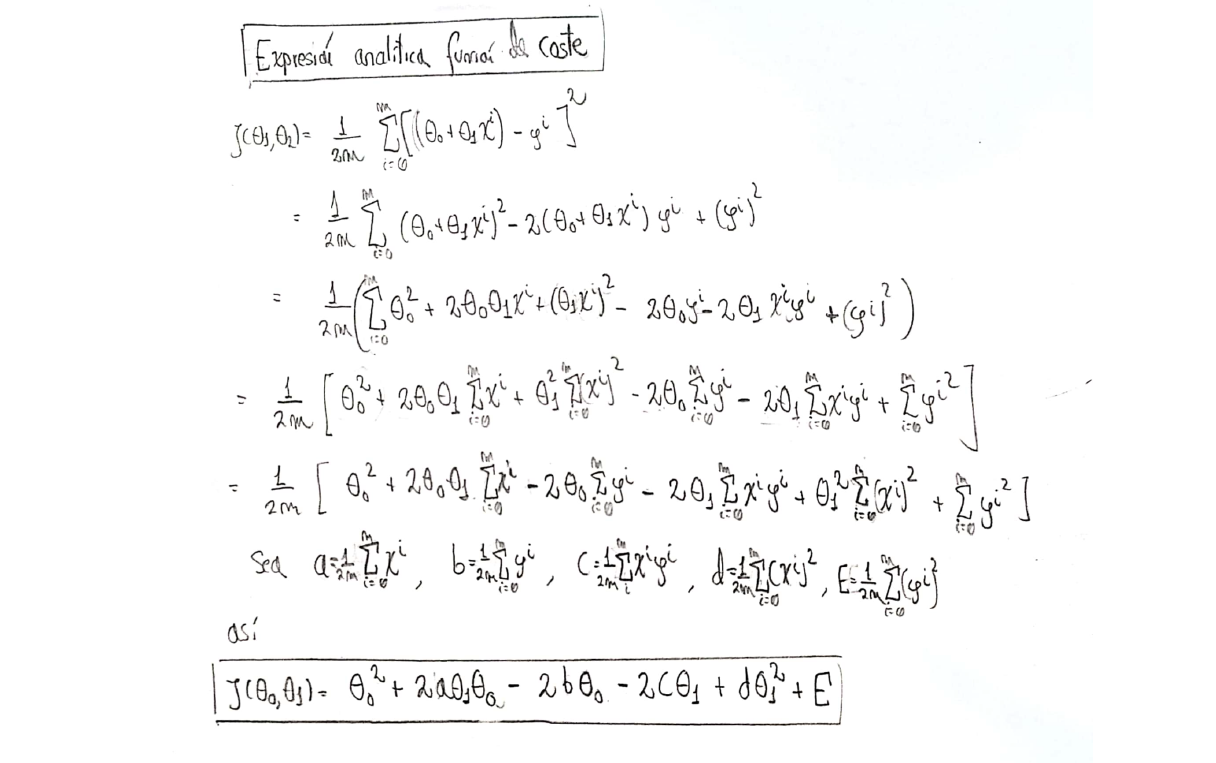 Expresión analitica función de coste
J(θ₁,θ₂)= 1/2m Σ_{i=0}^{m} [(θ₀+θ₁xⁱ) - yⁱ]²
= 1/2m Σ_{i=0}^{m} (θ₀+θ₁xⁱ)² - 2(θ₀+θ₁xⁱ) yⁱ + (yⁱ)²
= 1/2m (Σ_{i=0}^{m} θ₀² + 2θ₀θ₁xⁱ + (θ₁xⁱ)² - 2θ₀yⁱ - 2θ₁ xⁱyⁱ + (yⁱ)²)
= 1/2m [θ₀² + 2θ₀θ₁ Σ_{i=0}^{m} xⁱ + θ₁² Σ_{i=0}^{m} (xⁱ)² - 2θ₀ Σ_{i=0}^{m} yⁱ - 2θ₁ Σ_{i=0}^{m} xⁱyⁱ + Σ_{i=0}^{m} yⁱ²]
= 1/2m [θ₀² + 2θ₀θ₁ Σ_{i=0}^{m} xⁱ - 2θ₀ Σ_{i=0}^{m} yⁱ - 2θ₁ Σ_{i=0}^{m} xⁱyⁱ + θ₁² Σ_{i=0}^{m} (xⁱ)² + Σ_{i=0}^{m} yⁱ²]
Sea a=1/2m Σ_{i=0}^{m} xⁱ, b=1/2m Σ_{i=0}^{m} yⁱ, C=1/2m Σ_{i}^{m} xⁱyⁱ, d=1/2m Σ_{i=0}^{m} (xⁱ)², E=1/2m Σ_{i=0}^{m} (yⁱ)²
así
J(θ₀,θ₁)= θ₀² + 2aθ₁θ₀ - 2bθ₀ - 2Cθ₁ + dθ₁² + E